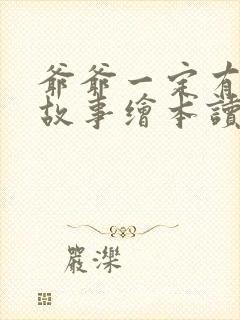 爺爺一定有
故事繪本讀
嚴濼